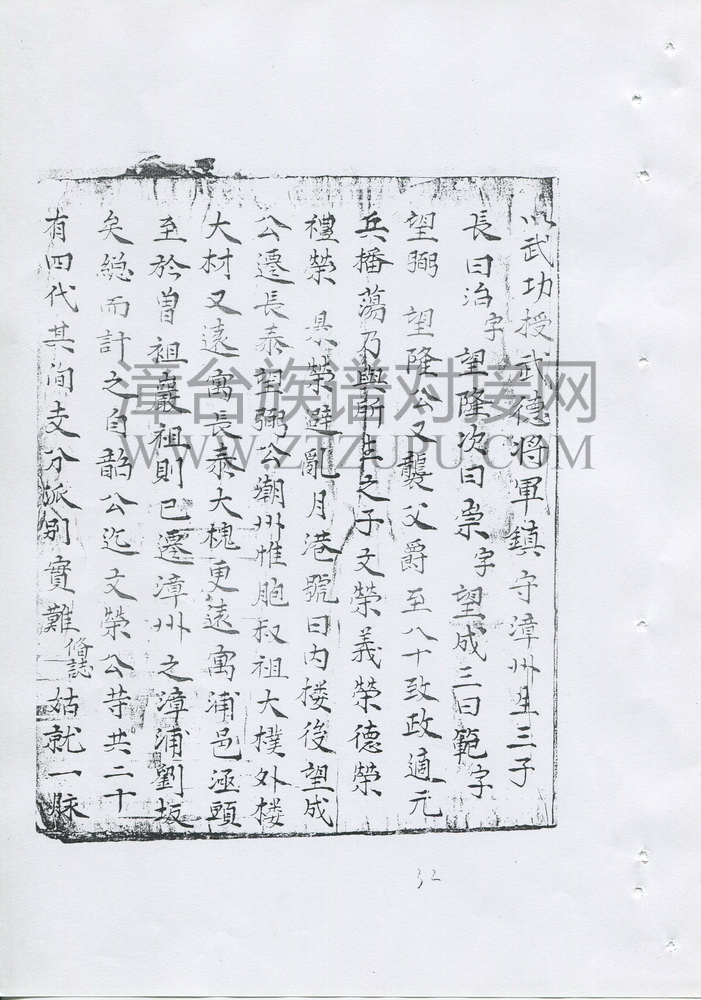 以武功授武德将軍鎮守漳州生三子
長曰治字望隆次曰崇字望成三曰範字
望弼望隆公又襲父爵至八十致政適元
兵播蕩乃與所生之子文榮義榮德榮
禮榮 榮避亂月港號曰内楼後望成
公遷長泰望弼公潮州惟胞叔祖大樸外楼
大材又遠寓長泰大槐更遠寓浦邑涵頭
至於曽祖巖祖則已遷漳州之漳浦劉坂
矣總而計之自韶公迄文榮公等共二十
有四代其间支分派别實難俻誌姑就一脉
漳台族谱对接网
WWW.ZTZUPU.COM
32